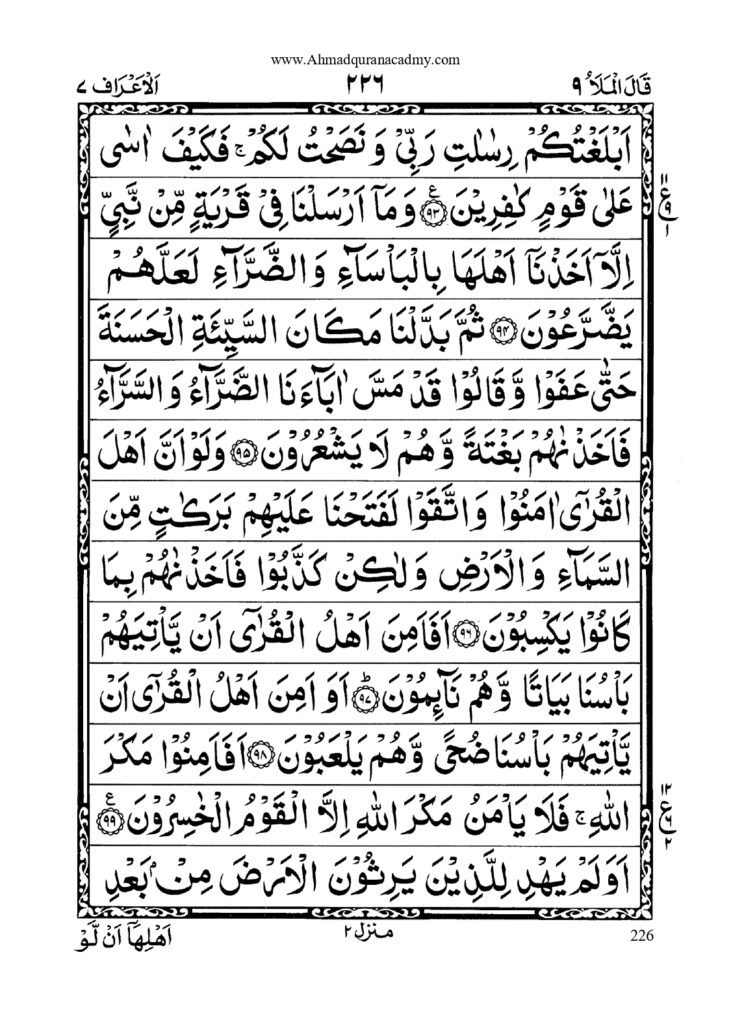 www.Ahmadquranacadmy.com
قَالَ الْمَلَاُ ٩ ٢٢٦ اَلْاَعْرَاف ٧
اَبْلَغْتُكُمْ رِسٰلٰتِ رَبِّیْ وَ نَصَحْتُ لَكُمْ ۚ فَكَیْفَ اٰسٰی
عَلٰی قَوْمٍ كٰفِرِیْنَ ۩٩٣ ع وَ مَاۤ اَرْسَلْنَا فِیْ قَرْیَةٍ مِّنْ نَّبِیٍّ
١١ ع ٩ ١
اِلَّاۤ اَخَذْنَاۤ اَهْلَهَا بِالْبَاْسَآءِ وَ الضَّرَّآءِ لَعَلَّهُمْ
یَضَّرَّعُوْنَ ٩٤ ثُمَّ بَدَّلْنَا مَكَانَ السَّیِّئَةِ الْحَسَنَةَ
حَتّٰی عَفَوْا وَّ قَالُوْا قَدْ مَسَّ اٰبَآءَنَا الضَّرَّآءُ وَ السَّرَّآءُ
فَاَخَذْنٰهُمْ بَغْتَةً وَّ هُمْ لَا یَشْعُرُوْنَ ٩٥ وَ لَوْ اَنَّ اَهْلَ
الْقُرٰۤی اٰمَنُوْا وَ اتَّقَوْا لَفَتَحْنَا عَلَیْهِمْ بَرَكٰتٍ مِّنَ
السَّمَآءِ وَ الْاَرْضِ وَ لٰكِنْ كَذَّبُوْا فَاَخَذْنٰهُمْ بِمَا
كَانُوْا یَكْسِبُوْنَ ٩٦ اَفَاَمِنَ اَهْلُ الْقُرٰۤی اَنْ یَّاْتِیَهُمْ
بَاْسُنَا بَیَاتًا وَّ هُمْ نَآىِٕمُوْنَ ؕ٩٧ اَوَ اَمِنَ اَهْلُ الْقُرٰۤی اَنْ
یَّاْتِیَهُمْ بَاْسُنَا ضُحًی وَّ هُمْ یَلْعَبُوْنَ ٩٨ اَفَاَمِنُوْا مَكْرَ
اللّٰهِ ۚ فَلَا یَاْمَنُ مَكْرَ اللّٰهِ اِلَّا الْقَوْمُ الْخٰسِرُوْنَ ٩٩ ع
١٢ ع ٦ ٢
اَوَ لَمْ یَهْدِ لِلَّذِیْنَ یَرِثُوْنَ الْاَرْضَ مِنْۢ بَعْدِ
اَهْلِهَاۤ اَنْ لَّوْ منزل ٢ 226